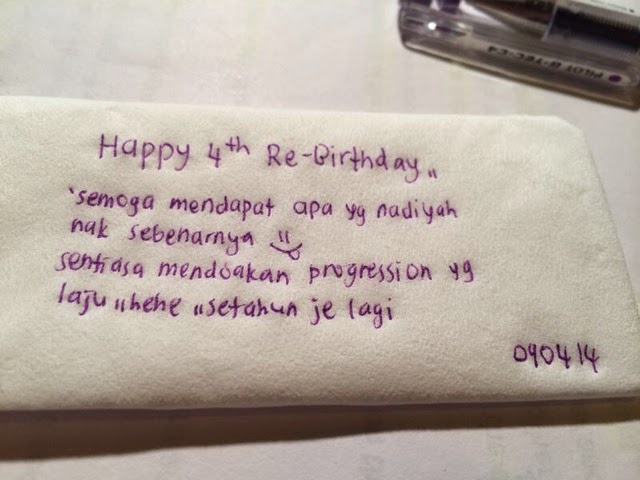 Happy 4th Re-Birthday,,
'semoga mendapat apa yg nadiyah
nak sebenarnya
sentiasa mendoakan progression yg
laju ,,hehe ,,setahun je lagi
090414
PILOT B-TEC-C4